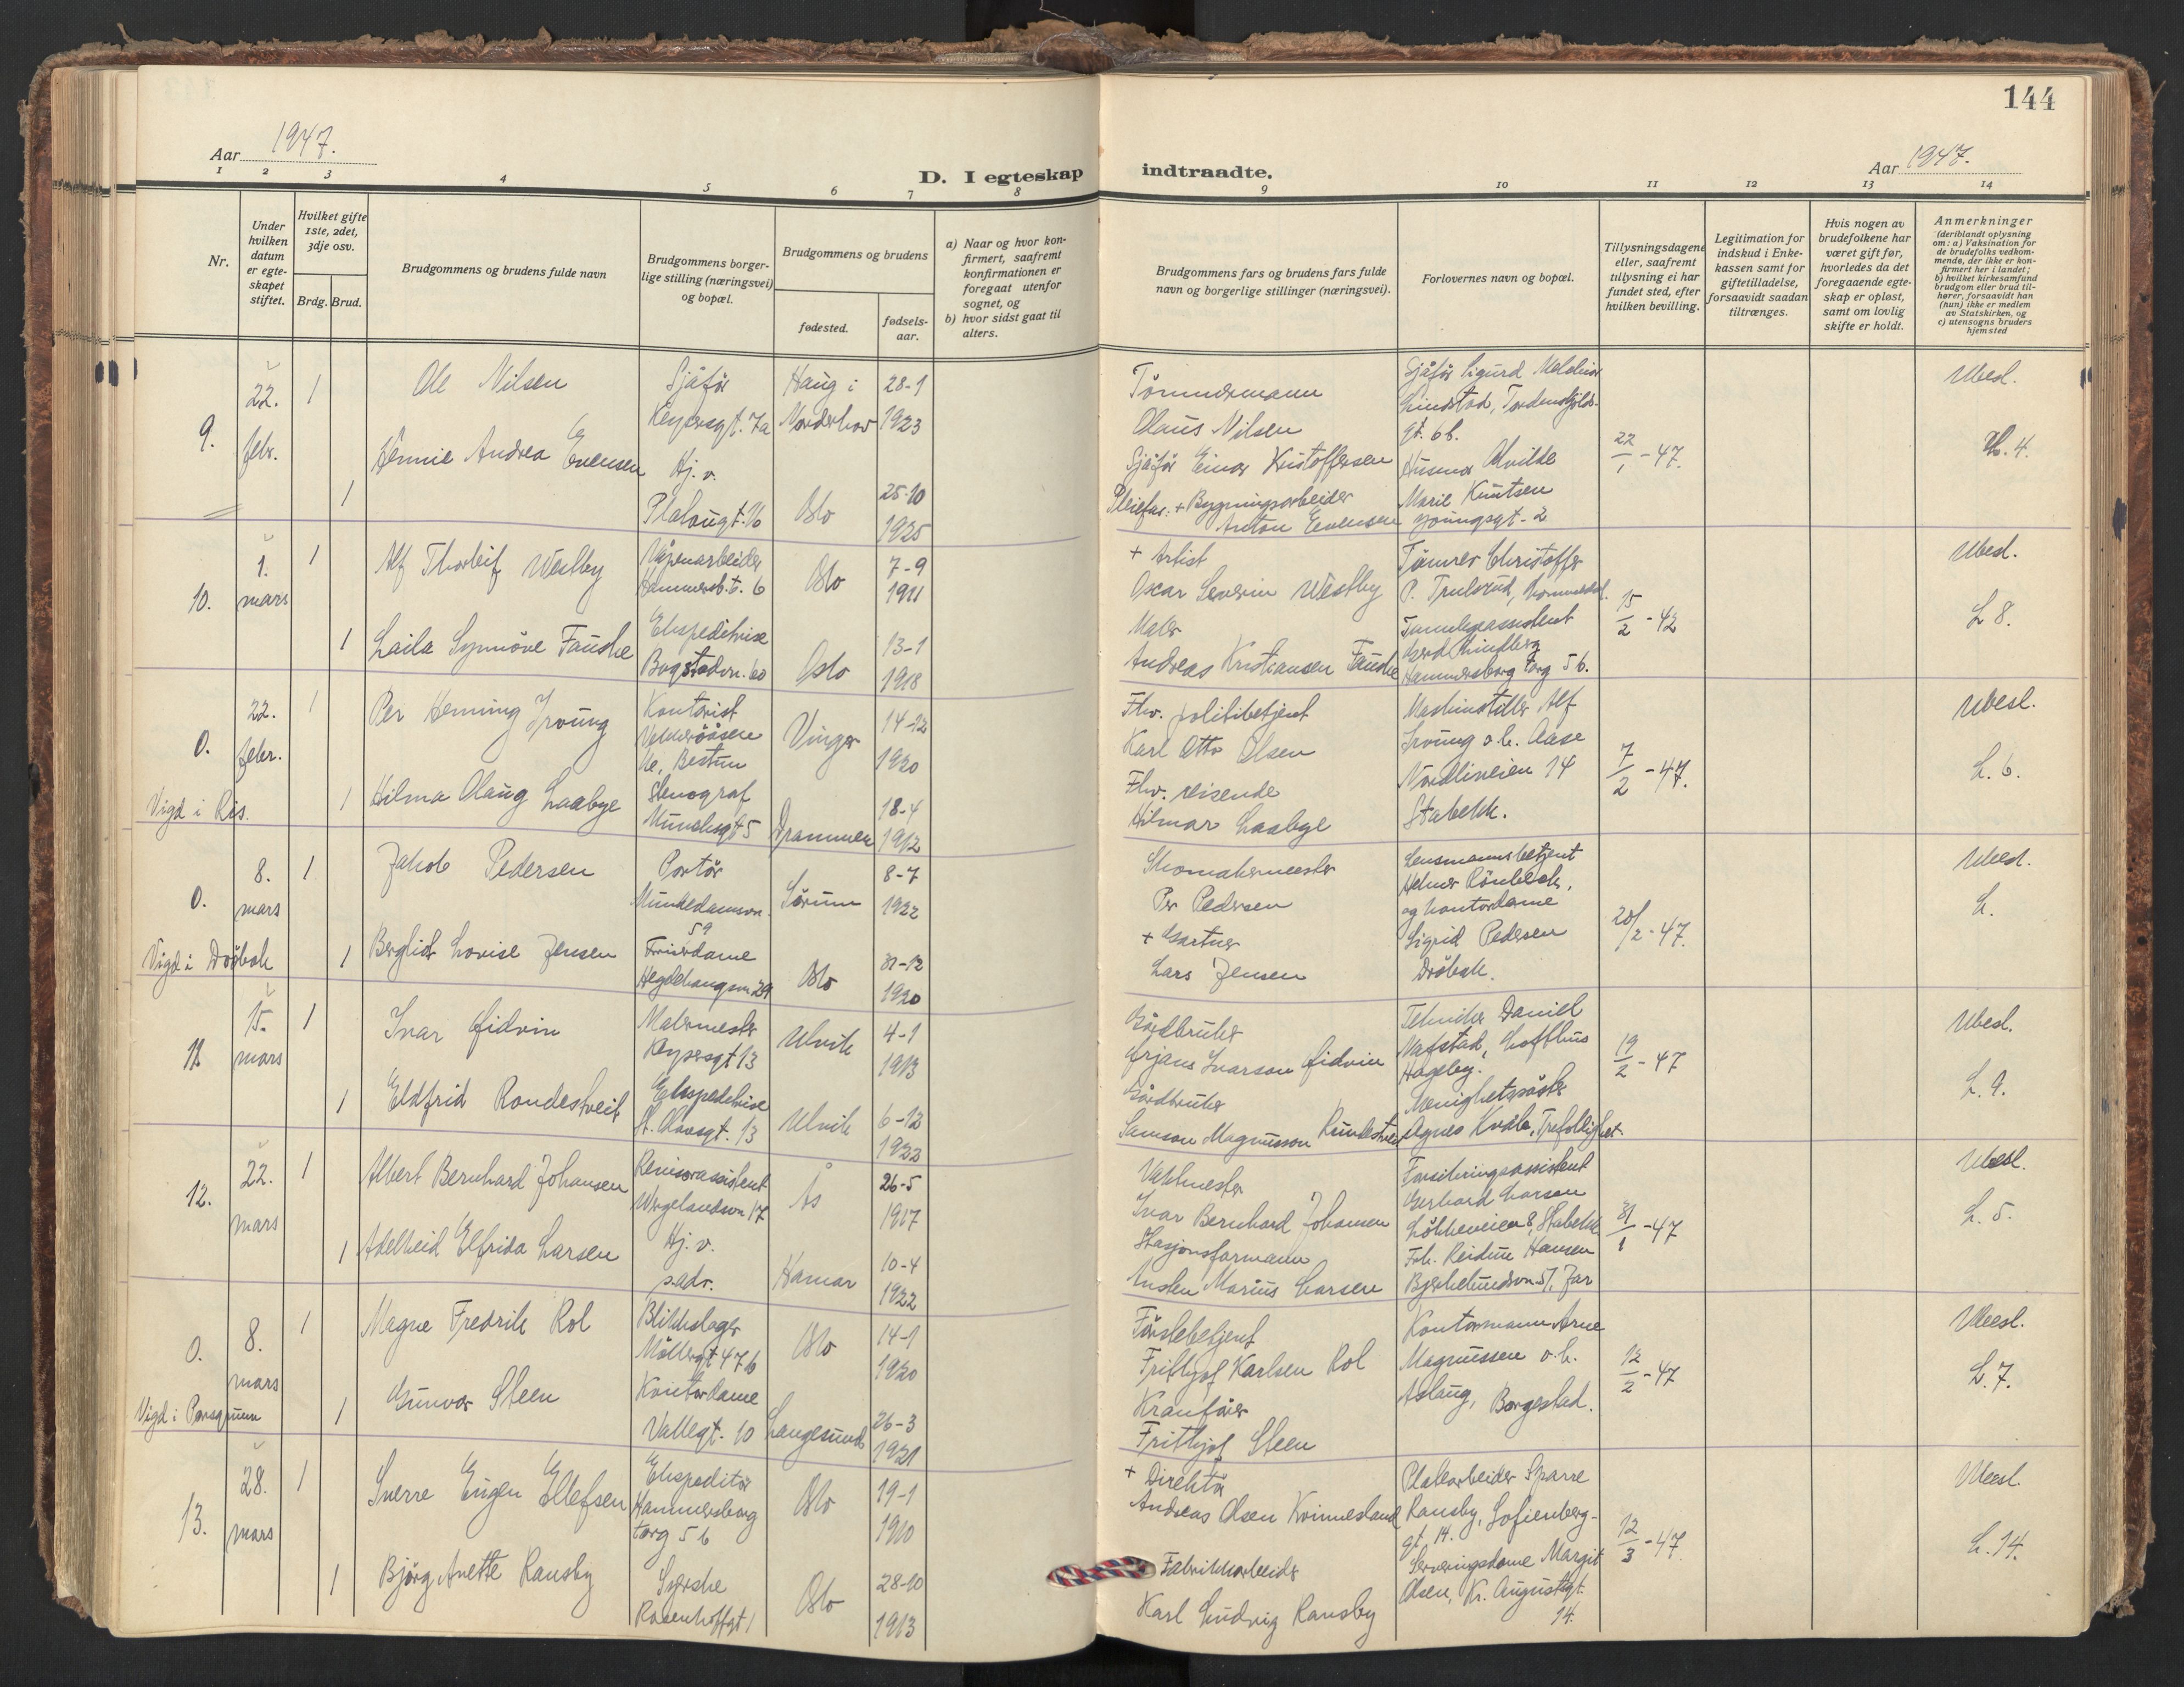 144
Aar 1947.
Aar 1947.
D. I egteskap indtraadte.
1 2 3 4 5 6 7 8 9 10 11 12 13 14
Nr.
Under hvilken datum er egteskapet stiftet.
Hvilket gifte 1ste, 2det, 3dje osv.
Brdg. Brud.
Brudgommens og brudens fulde navn
Brudgommens borgerlige stilling (næringsvei) og bopæl.
Brudgommens og brudens
fødested.
fødselsaar.
a) Naar og hvor konfirmert, saafremt konfirmationen er foregaat utenfor sognet, og
b) hvor sidst gaat til alters.
Brudgommens fars og brudens fars fulde navn og borgerlige stillinger (næringsvei).
Forlovernes navn og bopæl.
Tillysningsdagene eller, saafremt tillysning ei har fundet sted, efter hvilken bevilling.
Legitimation for indskud i Enkekassen samt for giftetilladelse, forsaavidt saadan tiltrænges.
Hvis nogen av brudefolkene har været gift før, hvorledes da det foregaaende egteskap er opløst, samt om lovlig skifte er holdt.
Anmerkninger (deriblandt oplysning om: a) Vaksination for de brudefolks vedkommende, der ikke er konfirmert her i landet; b) hvilket kirkesamfund brudgom eller brud tilhører, forsaavidt han (hun) ikke er medlem av Statskirken, og c) utensogns bruders hjemsted
9.
22. febr.
1
Ole Nilsen
Sjåfør
Keysersgt. 7a
Haug i Norderhov
28-1 1923
Tømmermann
Olaus Nilsen
Sjåfør Sigurd Melchior
Lindstad, Tordenskjolds-
gt. 6b.
22/1 - 47.
Ubesl.
L. 4.
1
Hennie Andrea Evensen
Hj. v.
Oslo
25-10 1925
Sjåfør Einar Kristoffersen
Pleiefar: + Bygningsarbeider
Anton Evensen
Husmor Alvilde
Marie Knutsen
Youngsgt. 2
10.
1. mars
1
Alf Thorleif Westby
Våpenarbeider
Hammersb. t. 6
Oslo
7-9 1911
+ Artist
Oscar Severin Westby
Tømrer Christoffer
P. Trulsrud,
15/2 - 42
Ubesl.
L 8.
1
Laila Synnøve Fauske
Ekspeditrise
Bogstadvn. 60
Oslo
13-1 1918
Maler
Andreas Kristiansen Fauske
Gerd Lindberg
Hammersborg torg 5 b.
0.
22. febr.
1
Per Henning Irvung
Kontorist
Vækerøåsen
Ve, Bestun
Vinger
14-12 1920
Fhv. politibetjent
Karl Otto Olsen
Maskinstiller Alf
Irvung o. h. Aase
Nordliveien 14
Stabekk.
7/2 - 47.
Ubesl.
L. 6.
Vigd i Ris.
1
Hilma Olaug Laabye
Stenograf
Munchsgt 5
Drammen
18-4 1912
Fhv. reisende
Hilmar Laabye
0.
8. mars
1
Jakob Pedersen
Portør
Munkedamsvn. 59
Sørum
8-7 1922
Skomakermester
Per Pedersen
Lensmannsbetjent
Helmer Rønbeck,
og kontordame
Sigrid Pedersen
Drøbak.
20/2 - 47.
Ubesl.
L.
Vigd i Drøbak
1
Bergliot Lovise Jensen
Frisérdame
Hegdehaugsvn 29
Oslo
31-12 1920
+ Gartner
Lars Jensen
11
15. mars
1
Ivar Eidvin
Malermester
Keysersgt 13
Ulvik
4-1 1913
Gårdbruker
Ørjans Ivarson Eidvin
Tekniker Daniel
Nafstad, Lofthus
Hageby.
19/2 - 47
Ubesl.
L. 9.
1
Eldfrid Rondestveit
Ekspeditrise
St. Olavsgt. 13
Ulvik
6-12 1922
Gårdbruker
Samson Magnusson Rundestveit
Menighetssøster
Agnes Kvåle, Trefoldighet.
12.
22. mars
1
Albert Bernhard Johansen
Revisorassistent
Wergelandsvn 17
Ås
26-5 1917
Vaktmester
Ivar Bernhard Johansen
Forsikringsassistent
Gerhard Larsen
Løkkeveien 8, Stabekk
31/1 - 47
Ubesl.
L. 5.
1
Adelheid Elfrida Larsen
Hj. v.
s. adr.
Hamar
10-4 1922
Stasjonsformann
Ansten Marius Larsen
Frk. Reidun Hansen
Bjerkelundsvn 57, Jar
0.
8. mars
1
Magne Fredrik Rol
Blikkslager
Møllergt 47b
Oslo
14-1 1920
Førstebetjent
Frithjof Karlsen Rol
Kontormann Arne
Magnussen o. h.
Aslaug, Borgestad.
12/2 - 47
Ubesl.
L. 7.
Vigd i Porsgrunn
1
Gunvor Steen
Kontordame
Vallegt. 10
Langesund
26-3 1921
Kranfører
Frithjof Steen
13.
28. mars
1
Sverre Eugen Ellefsen
Ekspeditør
Hammersborg
torg 5 b
Oslo
19-1 1910
+ Direktør
Andreas Olsen Kvinnesland
Platearbeider Sparre
Ransby, Sofienberg-
gt 14.
12/3 - 47.
Ubesl.
L. 14.
1
Bjørg Anette Ransby
Syerske
Rosenhoffgt 1
Oslo
28-10 1913
Fabrikkarbeider
Karl Ludvig Ransby
Serveringsdame Margit
Olsen, Kr. Augustsgt.
14.